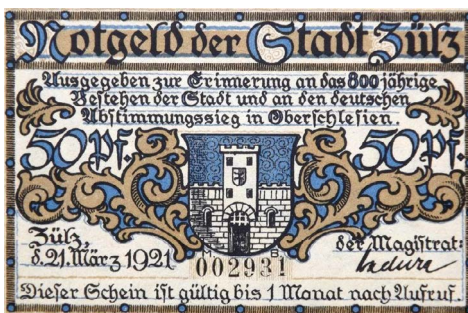 Notgeld der Stadt Zülz
Ausgegeben zur Erinnerung an das 800 jährige
Bestehen der Stadt und an den deutschen
Abstimmungssieg in Oberschlesien.
50 Pf. 50 Pf.
Zülz, der Magistrat:
d. 21. März 1921
M. B.
002931
Dieser Schein ist gültig bis 1 Monat nach Aufruf.